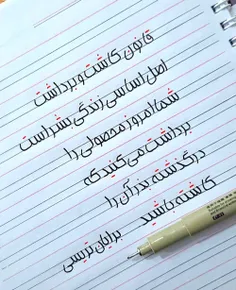 قانون کاشت و برداشت
اصل اساسی زندگی بشر است
شما امروز محصولی را
برداشت می‌کنید که
در گذشته بذر آن را
کاشته باشید
برایان تریسی